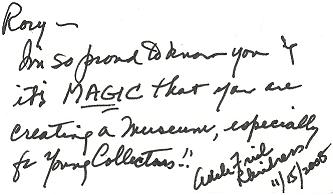 Rory —
I'm so proud to know you &
it's MAGIC that you are
creating a Museum, especially
for Young Collectors!!
Adele Friel
Rhindress
11/15/2005